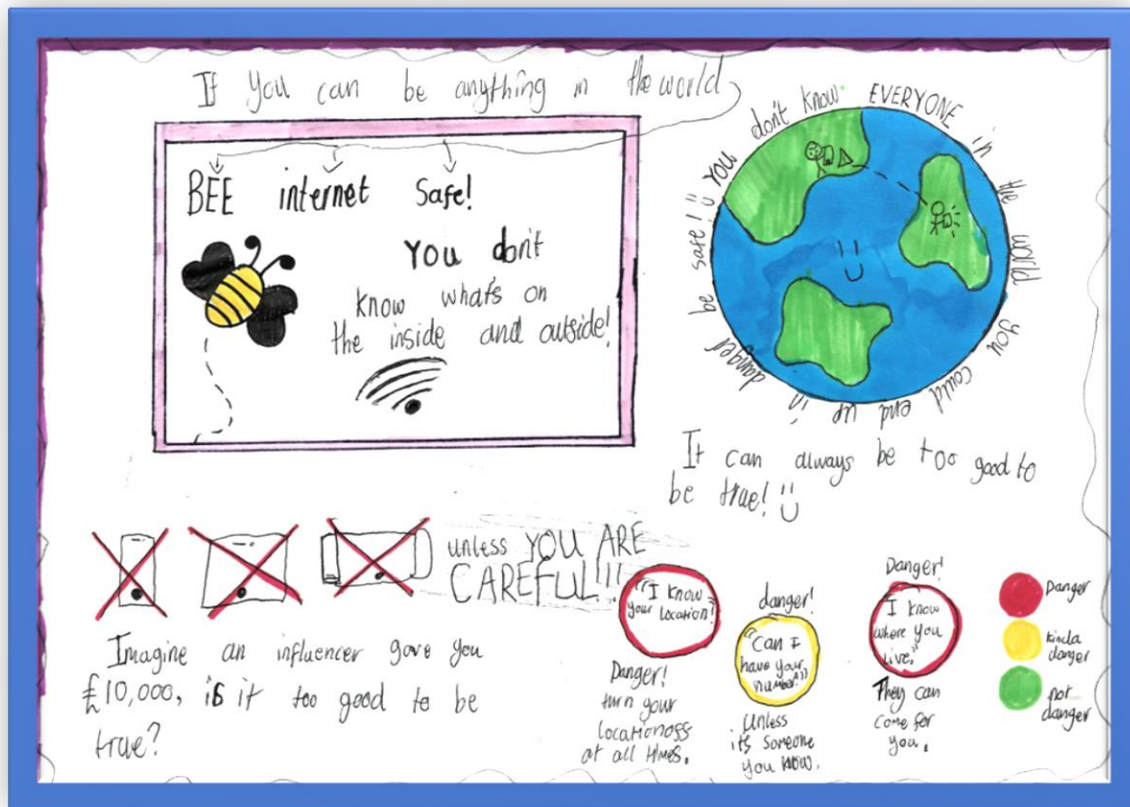 If you can be anything in the world
BEE internet Safe!
You don't
know what's on
the inside and outside!
You don't know EVERYONE in the world you could end up in danger be safe!
It can always be too good to
be true!
unless YOU ARE
CAREFUL!!!
Imagine an influencer gave you
£10,000, is it too good to be
true?
"I know
your location!"
Danger!
turn your
locationoss
at all times.
danger!
"Can I
have your
number?"
Unless
its someone
you know.
Danger!
"I know
where you
live."
They can
come for
you.
Danger
kinda
danger
not
danger